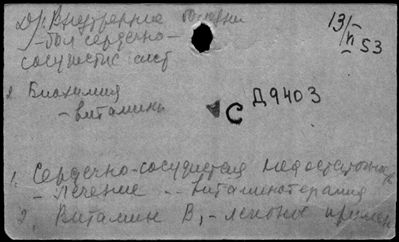 Др. Внутренние болезни
– бол сердечно-
сосудистис сист
13/II 53
2. Биохимия
– витамины
С Д9403
1. Сердечно-сосудистая недостаточность
– лечение -- витаминотерапия
2. Витамин B₁ – лечебное примен